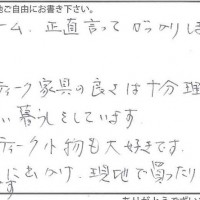 ご自由にお書き下さい。
ーム、正直言ってがっかりしま
ティーク家具の良さは十分理
い暮らしをしています。
ティーク小物も大好きです。
に出かけ、現地で買ったり
す
ありがとうござい